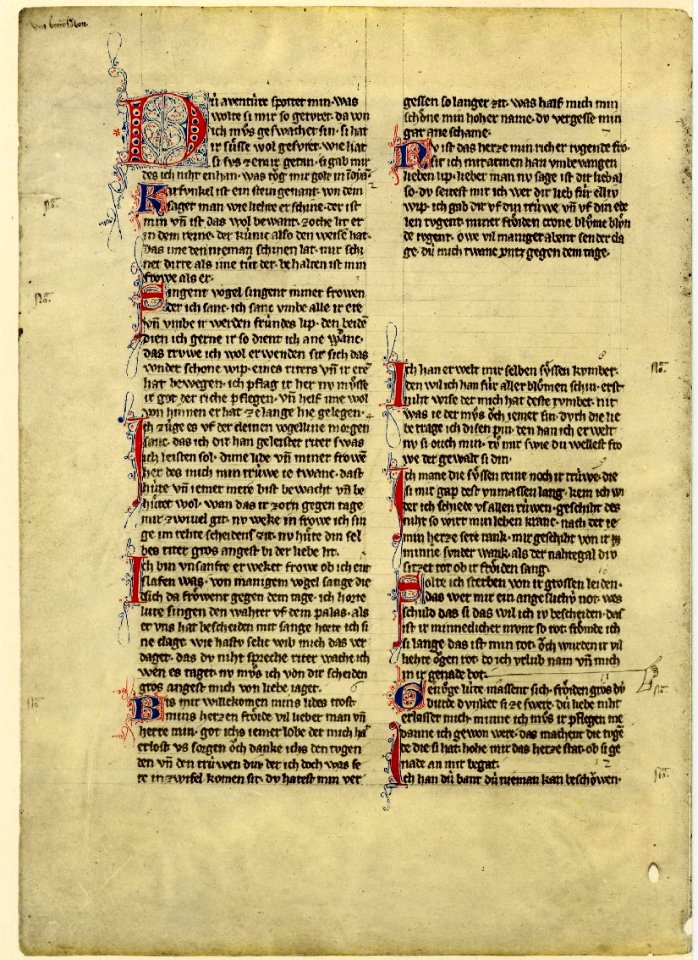 Dú aventúre spottet min· was
wolte si mir so getúret· da von
ich mvͦs geswachet sin· si hat
ir sússe wol gefúret· wie hat
si svs zemir getan· si gab mir
des ich niht enhan· was tǒg mir golt in
Karfvnkel ist ein stein genant· von dem
saget man wie liehte er schine· der ist
min vn̄ ist das wol bewant· zoche lit er
in dem rine· der kúnic also den weise hat·
das ime den nieman schinen lat· mir schi
net dirre als ime tůt der· behalten ist min
frowe als er·
Singent vogel singent miner frowen
der ich sanc· ich sanc vmbe alle ir ere
vn̄ vmbe ir werden frúndes lip· den beiden
dien ich gerne ir so dient ich ane wanc·
das trvwe ich wol erwenden sit sich das
wnder schone wip· eines riters vn̄ ir ere
hat bewegen· ich pflag it her nv mvͤsse
ir got der riche pflegen· vn̄ helf ime wol
von hinnen er hat ze lange hie gelegen·
Ich zúge es vf der cleinen vogelline morgen
sanc· das ich dir han geleistet riter swas
ich leisten sol· dime libe vn̄ miner frowen
her des mich min trúwe ie twanc· dast
hůte vn̄ iemer mere bist bewacht vn̄ be
hůtet wol· wan das ir zorn gegen tage
mir zwiuel git· nv weke in frowe ich sin
ge im rehte scheidens zit· nv hůte din sel
bes riter gros angest bi der liebe lit·
Ich bin vnsanfte er weket frowe ob ich ent
slafen was· von manigem vogel sange die
dich da frówent gegen dem tage· ich horte
lute singen den wahter vf dem palas· als
er vns hat bescheiden mit sange hoere ich si
ne clage· wie hastv selic wib mich das ver
dagen· das dv niht spreche riter wache ich
wen es taget· nv mvͦs ich von dir scheiden
gros angest mich von liebe iaget·
Bis mir willekomen mins libes trost
mins herzen frǒide vil lieber man vn̄
herre min· got ichs iemer lobe der mich hat
erlost vs sorgen ǒch danke ichs den tvgen
den vn̄ den trúwen din der ich doch was se
re in zwifel komen sit· dv hatest min ver
gessen so langer zit· was half mich min
schóne min hoher name· dv vergesse min
gar ane schame·
Nv ist das herze min richer tvgende fro
sit ich mit armen han vmbevangen
lieben lip· lieber man nv sage ist dir lieb al
so· dv seiest mir ich wer dir lieb fúr elliv
wip· ich gab dir vf din trúwe vn̄ vf din ede
len tvgent· miner frǒiden crone blůme blůn
de tvgent· owe vil maniger abent sender cla
ge· dú mich twanc vntz gegen dem tage·
Ich han erwelt mir selben sússen kvmber·
den wil ich han fúr aller blůmen schin· erst
niht wise der mich hat deste tvmber· nit
was ie der mvͦs ǒch iemer sin· dvrch die lie
be trage ich disen pin· den han ich erwelt
nv si ouch min· tů mir swie du wellest fro
we der gewalt si din·
Ich mane die sússen reine noch ir trúwe· die
si mir gap dest vnmassen lang· kem ich wi
der ich schiede vs allen rúwen· geschiht des
niht so wirt min leben kranc· nach der ie
min herze sere rank· mir geschiht von ir in
minne sonder wank· als der nahtegal div
sitzet tot ob ir frǒiden sang·
Solte ich sterben von ir grossen leiden·
das wer mir ein angeslichv not· wes
schuld das si das wil ich iv bescheiden· das
ist ir minneclicher mvnt so rot· frómde ich
si lange das ist min tot· ǒch wurden ir vil
liehte ǒgen rot· do ich vrlub nam vn̄ mich
in ir genade bot·
Genůge lúte massent sich frǒiden gros dv
durte dvnket si ze swere· dú liebe niht
erlasset mich minne ich mvͦs ir pflegen me
danne ich gewon were· das machent die tvge
de die si hat· hohe mir das herze stat· ob si ge
nade an mir begat·
Ich han dú bant dú nieman kan beschǒwen·